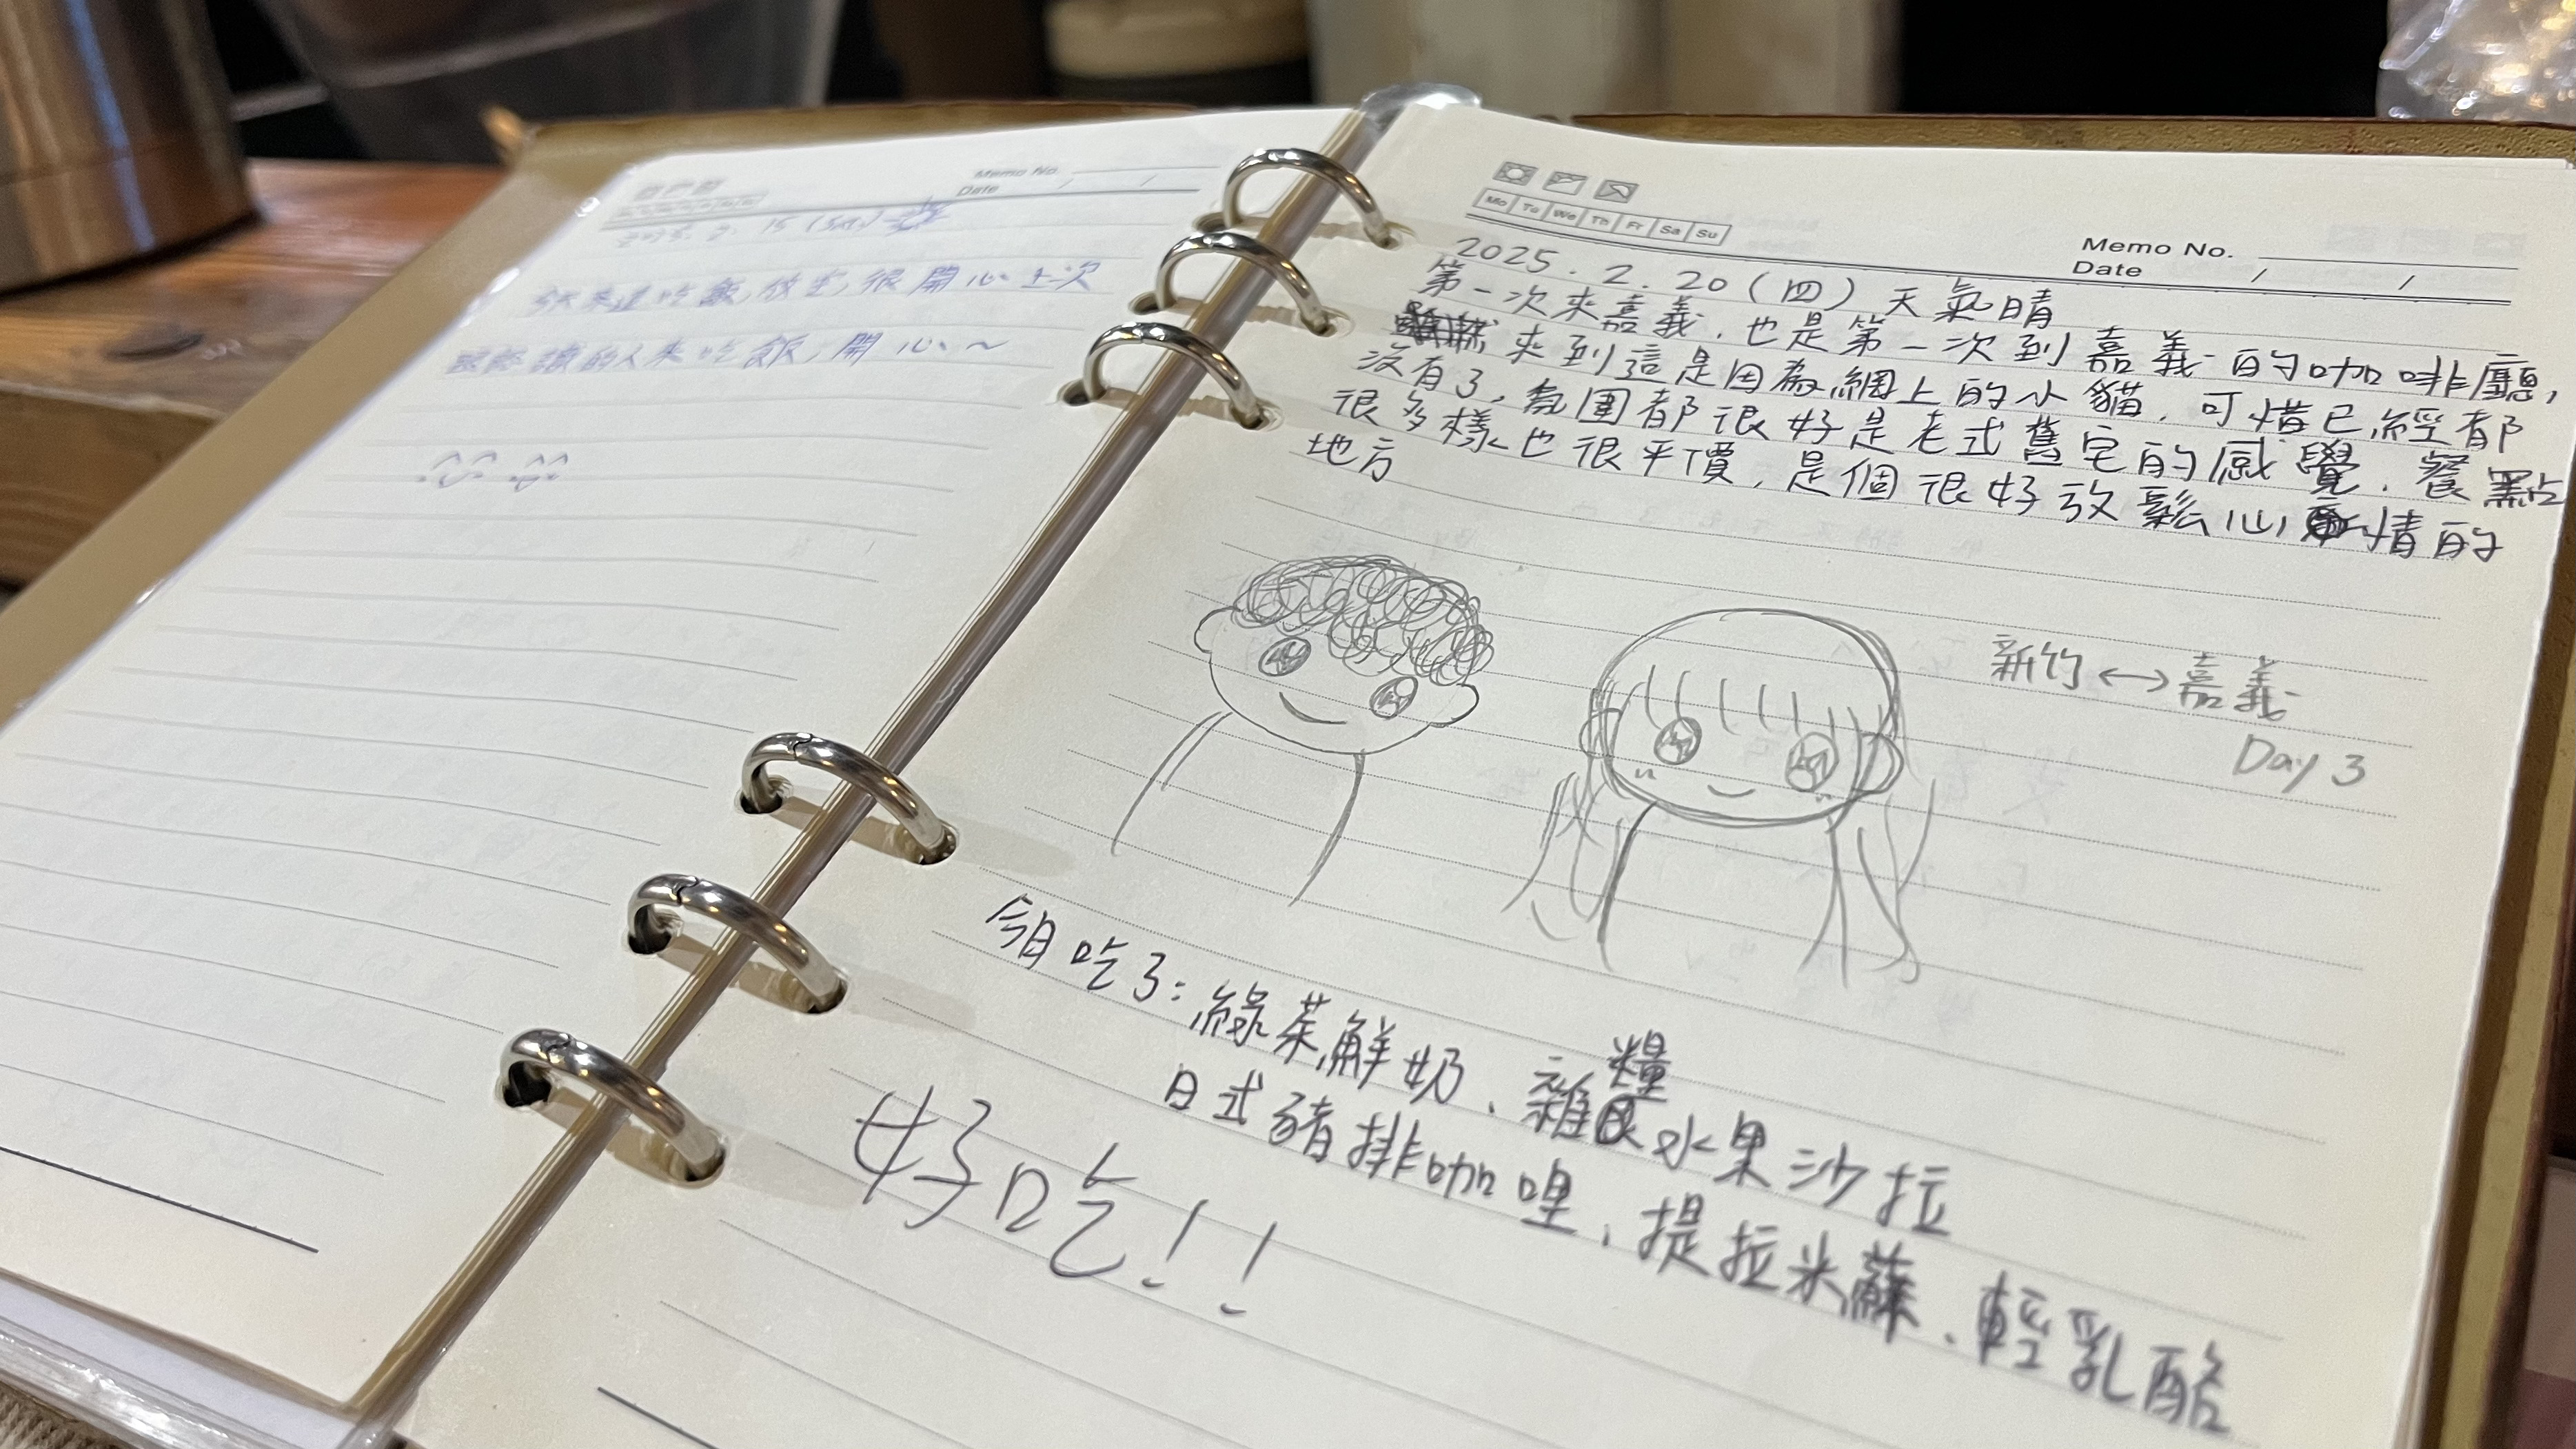 Memo No.
Date / /
2025. 2. 15 (Sat)
今天來這吃飯放空,很開心上次
認識的人來吃飯,開心~
Mo Tu We Th Fr Sa Su
Memo No.
Date / /
2025.2.20(四)天氣晴
第一次來嘉義,也是第一次到嘉義的咖啡廳,
來到這是因為網上的小貓,可惜已經都
沒有了,氛圍都很好是老式舊宅的感覺,餐點
很多樣也很平價,是個很好放鬆心情的
地方
新竹↔嘉義
Day 3
今日吃了:綠茶鮮奶、雜糧水果沙拉
日式豬排咖哩、提拉米蘇、輕乳酪
好吃!!